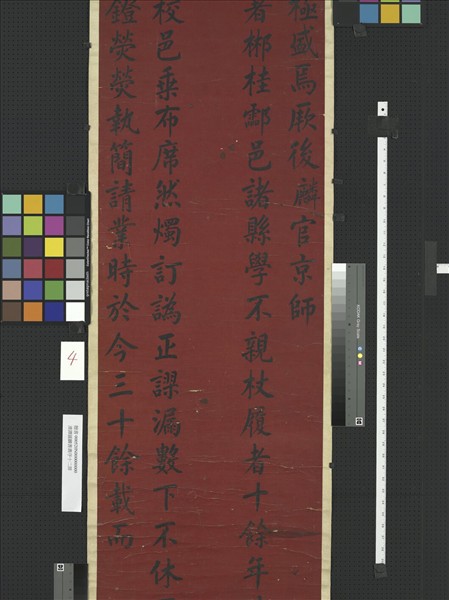 極盛焉厥後麟官京師
者郴桂酃邑諸縣學不親杖履者十餘年
校邑乘布席然燭訂譌正謬漏數下不休
鐙熒熒執簡請業時於今三十餘載而
4